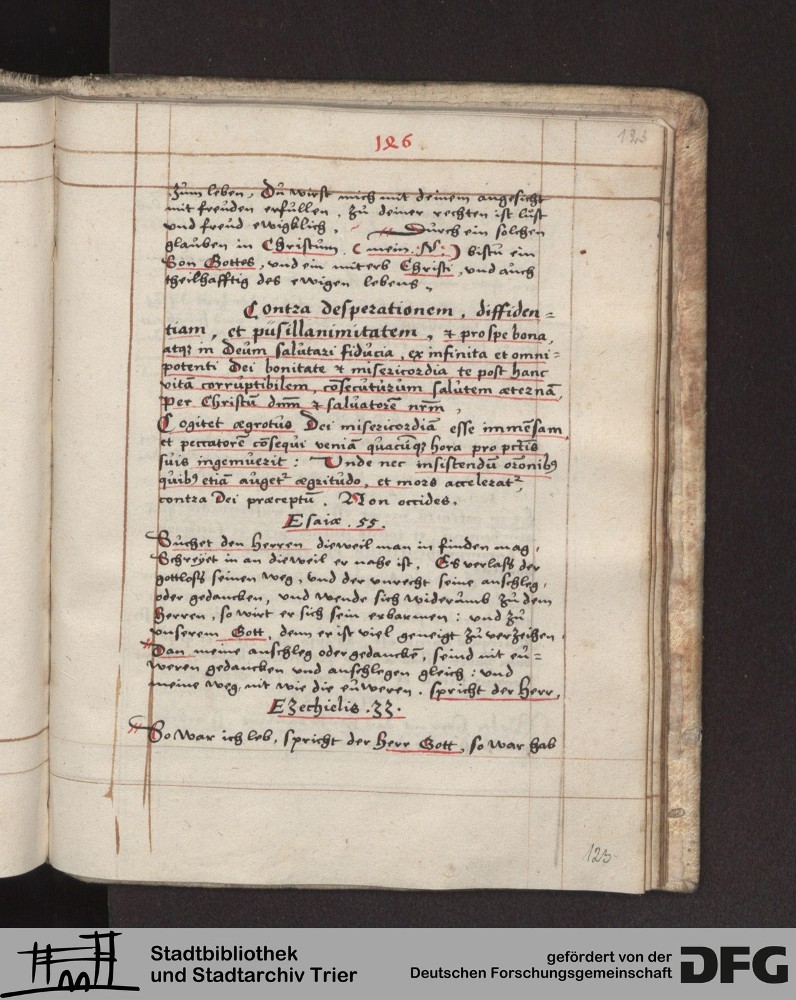 126
123
zum leben, Du wirst mich mit deinem angesicht
mit freuden erfullen, zu deiner rechten ist lust
vnd freud ewigklich, Durch ein solchen
glauben in Christum (mein :N:) bistu ein
Son Gottes, vnd ein miterb Christi, vnd auch
theilhafftig des ewigen lebens,
Contra desperationem, diffiden=
tiam, et pusillanimitatem, & pro spe bona,
atq; in Deum salutari fiducia, ex infinita et omni=
potenti Dei bonitate & misericordia te post hanc
vitā corruptibilem, cōsecuturum salutem æternā,
Per Christū dn̄m & saluatorē nr̄m,
Cogitet ægrotus Dei misericordiā esse immēsam,
et peccatorē cōsequi veniā quacūq; hora pro pctīs
suis ingemuerit: Vnde nec insistendū orōnib9
quib9 etiā auget² ægritudo, et mors accelerat²,
contra Dei præceptū, Non occides.
Esaiæ .55.
Suchet den Herren dieweil man in finden mag,
Schreyet in an dieweil er nahe ist, Es verlass der
gottloss seinen weg, vnd der vnrecht seine anschleg,
oder gedancken, vnd wende sich widerumb zu dem
Herren, so wirt er sich sein erbarmen: vnd zu
vnserem Gott, denn er ist viel geneigt zu verzeihen,
Dan meine anschleg oder gedanckē, seind nit eu=
weren gedancken vnd anschlegen gleich: vnd
meine weg, nit wie die euweren, spricht der Herr,
Ezechielis .33.
So war ich leb, spricht der Herr Gott, so war hab
123
Stadtbibliothek
und Stadtarchiv Trier
gefördert von der
Deutschen Forschungsgemeinschaft
DFG